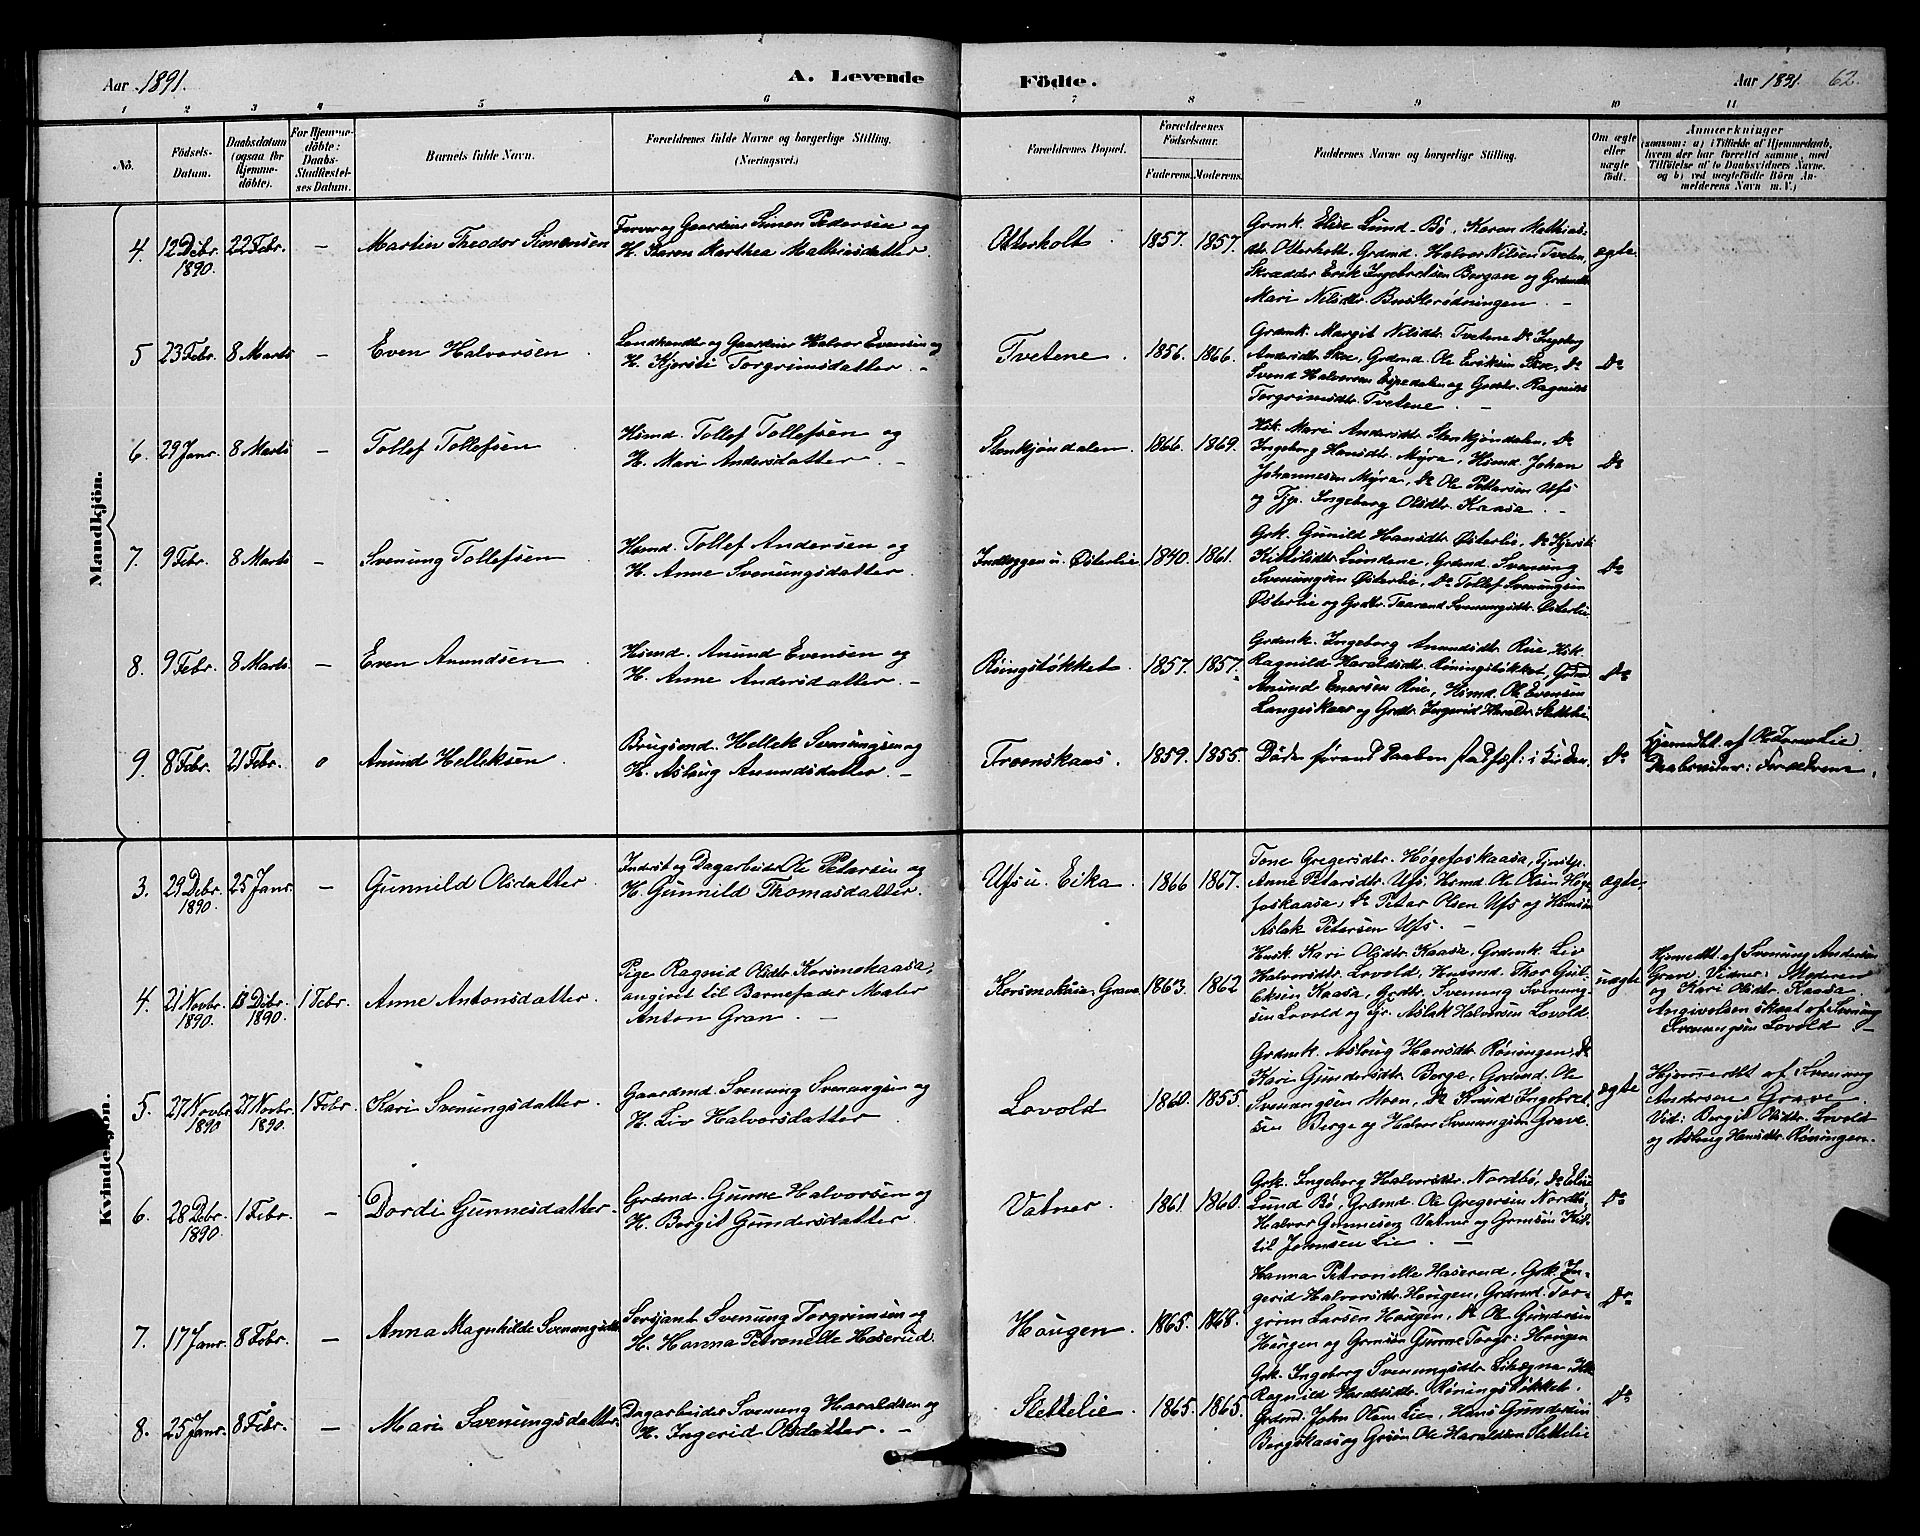 Aar 1891.
A. Levende
Födte.
Aar 1891. 62.
1 2 3 4 5 6 7 8 9 10 11
No.
Födsels-
Datum.
Daabsdatum
(ogsaa for
Hjemme-
döbte).
For Hjemme-
döbte:
Daabs-
Stadfæstel-
ses Datum.
Barnets fulde Navn.
Forældrenes fulde Navne og borgerlige Stilling.
(Næringsvei.)
Forældrenes Bopæl.
Forældrenes
Födselsaar.
Faderens. Moderens.
Faddernes Navne og borgerlige Stilling.
Om ægte
eller
uægte
födt.
Anmærkninger
(saasom: a) i Tilfælde af Hjemmedaab,
hvem der har forrettet samme, med
Tilföielse af to Daabsvidners Navne,
og b) ved uægtefödte Börn An-
melderens Navn m. V.)
Mandkjön.
4. 12 Debr. 1890 22 Febr. – Martin Theodor Simensen
Farver og Gaardeier Simen Pedersen og
H. Karen Marthea Mathiasdatter.
Otterholt. 1857. 1857.
Grmk. Elise Lund Bö, Karen Mathias-
dtr. Otterholt, Grdmd. Halvor Nilsen Tveten,
Skrædder Erik Ingebretsen Borgen og
Mari Nilsdtr. –
ægte.
5 23 Febr. 8 Marts – Even Halvorsen.
Landhandler og Gaardeier Halvor Evensen og
H. Kjersti Torgrimsdatter. –
Tvetene. 1856. 1866.
Grdmk. Margit Nilsdtr. Tvetene Do Ingeborg
Andersdtr. Skoe, Grdmd. Ole Eriksen Skoe, Do
Svend Halvorsen Espedalen og Grdtr. Ragnild
Torgrimsdtr. Tvetene. –
Do
6. 29 Janr. 8 Marts – Tollef Tollefsen
Hsmd. Tollef Tollefsen og
H. Mari Andersdatter. –
Stenkjöndalen. 1866. 1869.
Hsk. Mari Andersdtr. Stenkjöndalen, Do
Ingeborg Hansdtr. Myra, Hsmd. Johan
Johannesen Myra, Do Ole Pettersen Ufs
og Tjp. Ingeborg Olsdtr. Kaasa. –
Do
7. 9 Febr. 8 Marts – Svenung Tollefsen
Hsmd. Tollef Andersen og
H. Anne Svenungsdatter.
Indlæggen u. Østerlie. 1840. 1861.
Grk. Gunild Hansdtr. Østerlie, Do Kjersti
Kittilsdtr. Lundene, Grdmd. Svenung
Svenungsen Østerlie, Do Tollef Svenungsen
Østerlie og Grdtr. Taarand Svenungsdtr. Østerlie
Do
8. 9 Febr. 8 Marts. – Even Anundsen
Hsmd. Anund Evensen og
H. Anne Andersdatter. –
Röingstökket. 1857. 1857.
Grdmk. Ingeborg Anundsdtr. Rue, Hsk.
Ragnild Haraldsdtr. Röningstökket, Grdmd.
Anund Enersen Rue, Hsmd. Ole Evensen
Langeskaar og Grdtr. Ingerid Haraldr. Slettelie
Do
9. 8 Febr. 21 Febr. o Anund Helleksen.
Brugsmd. Hellek Svenungsen og
H. Aslaug Anundsdatter. –
Troenskaas. 1859. 1855.
Döde förend Daaben stadfæst: i Kirken.
Do
Hjemdbt. af
Daabsvidner: Forældrene.
Kvindekjön.
3. 29 Debr. 1890 25 Janr. – Gunnild Olsdatter.
Inderst og Dagarbeider Ole Petersen og
H. Gunnild Thomasdatter.
Ufs u. Eika. 1866 1867.
Tone Gregersdtr. Högefoskaasa, Tjnstp.
Anne Petersdtr. Ufs, Hsmd. Ole Olsen Höge-
foskaasa, Do Peter Olsen Ufs og
Aslak Petersen Ufs. –
ægte.
4. 21 Novbr. 1890. 13 Debr. 1890. 1 Febr. Anne Antonsdatter.
Pige Ragnild Olsdtr. Korsmokaasa,
angivet til Barnefader Maler
Anton Gran. –
Korsmokaasa, Grave. 1863. 1862
Husk. Kari Olsdtr. Kaasa, Grdmk. Liv
Halvorsdtr. Lovold, Husmd. Thor Gul-
leksen Kaasa, Grdtr. Svenung Svenung-
sen Lovold og Gr. Aslak Halvorsen Lovold
uægte
Hjemdbt. af Svenung Andersen
Grave. Vidner: Moderen
og Kari Olsdtr. Kaasa
Angivelsen skeet af Svenung
Svenungsen Lovold –
5. 27 Novbr. 1890 27 Novbr. 1890. 1 Febr. Kari Svenungsdatter.
Gaardmd. Svenung Svenungsen og
H. Liv Halvorsdatter.
Lovold 1860. 1855.
Grdmk. Aslaug Hansdtr. Röningen, Do
Kari Gundersdtr. Berge, Grdmd. Ole
Svenungsen Moen, Do Ingebret-
sen Berge og Halvor Svenungsen Grave.
ægte
Hjemmedbt af Svenung
Andersen Grave.
Vid: Bergit Olsdtr. Lovold
og Aslaug Hansdtr. Röningen.
6. 28 Debr. 1890 1 Febr. – Dordi Gunnesdatter.
Grdmd. Gunne Halvorsen og
H. Borgit Gundersdatter.
Vatner. 1861. 1860.
Grk. Ingeborg Halvorsdtr. Nordbö, Do Elise
Lund Bö, Grdmd. Ole Gregersen Nordbö,
Halvor Gunnesen Vatner og Grmsön Kit-
til Johnsen Lie. –
Do
7. 17 Janr. 8 Febr. – Anna Magnhilde Svenungsdtr.
Sersjant Svenung Torgrimsen og
H. Hanna Petronelle Haserud.
Haugen. 1865. 1868.
Hanna Petronelle Haserud, Grk. In-
gerid Halvorsdtr. Haugen, Grdmd. Tor-
grim Larsen Haugen, Do Ole Gundersen
Haugen og Grmsön Gunne Torgr: Haugen
Do
8. 25 Janr. 8 Febr. – Mari Svenungsdatter.
Dagarbeider Svenung Haraldsen og
H. Ingerid Olsdatter. –
Slettelie. 1865. 1865.
Grk. Ingeborg Svenungsdtr.
Ragnild Haraldsdtr. Röningstökket.
Grdmd. John Olsen Lie, Hans Gundersen
Bergskaas og Grsön Ole Haraldsen Slettelie
Do